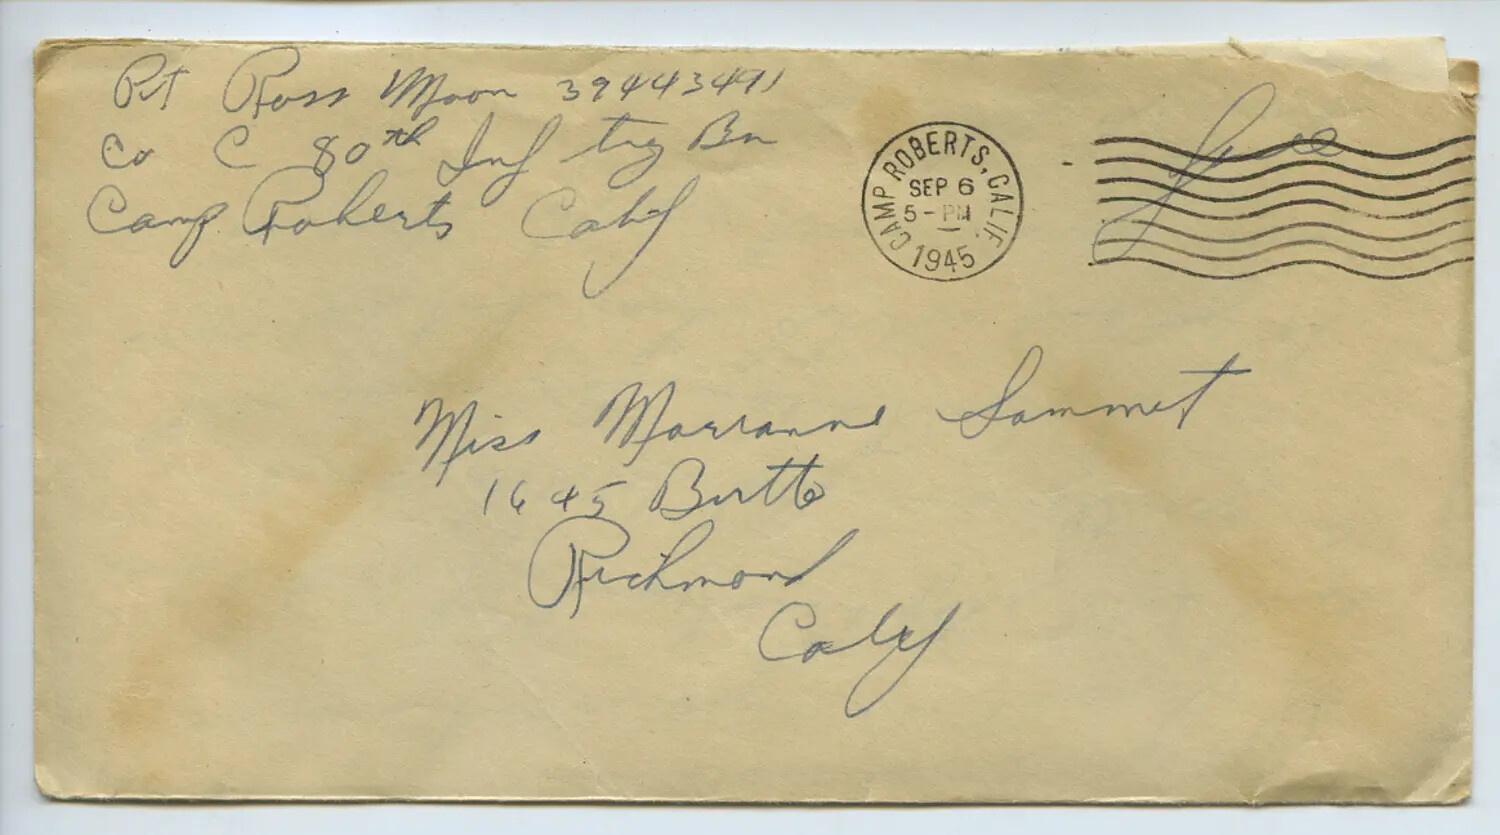 Pvt Ross Moon 39443491
Co C 80th Inf trg Bn
Camp Roberts Calif
CAMP ROBERTS, CALIF.
SEP 6
5 - PM
1945
Free
Miss Marianne Sammet
1645 Butte
Richmond
Calif